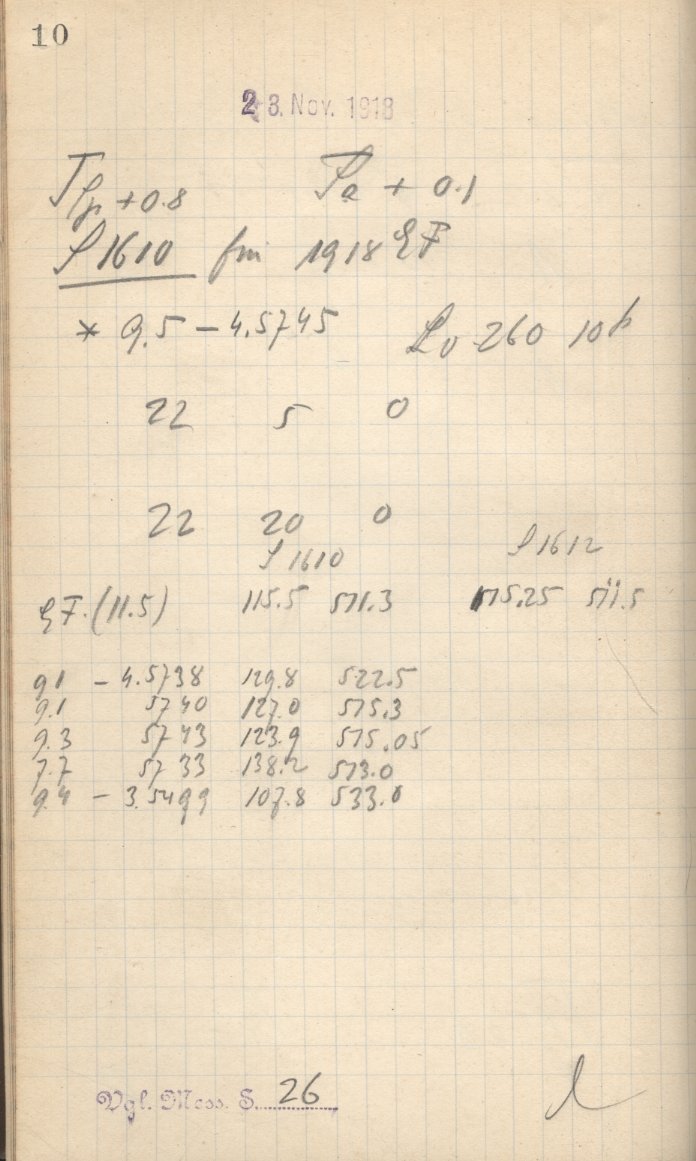 10
23. Nov. 1918
+0.8 + 0.1
S 1610 für 1918 EF
* 9.5 – 4.5745 260 10h
22 5 0
22 20 0
S 1610 S 1612
EF. (11.5) 115.5 511.3 115.25 511.5
9.1 – 4.5738 129.8 522.5
9.1 5740 127.0 515.3
9.3 5743 123.9 515.05
7.7 5733 138.2 513.0
9.4 – 3.5499 107.8 533.0
Vgl. Mess. S. 26